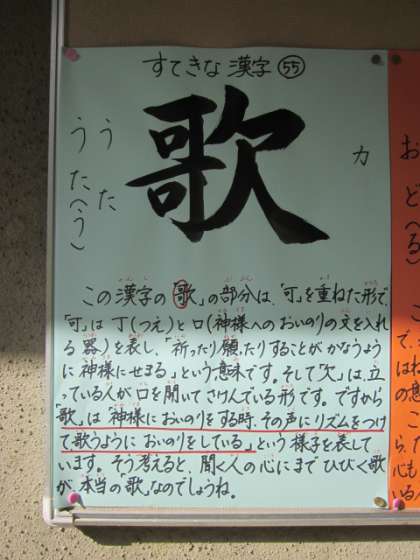 すてきな漢字 55
歌
カ
うた
うた(う)
この漢字の「歌」の部分は、「可」を重ねた形で、
「可」は丁(つえ)と口(神様へのおいのりの文を入れ
る器)を表し、「祈ったり願ったりすることがかなうよう
に神様にせまる」という意味です。そして「欠」は、立
っている人が口を開いてさけんでいる形です。ですから
「歌」は「神様においのりをする時、その声にリズムをつけ
て、歌うようにおいのりをしている」という様子を表して
います。そう考えると、聞く人の心にまでひびく歌
が、本当の「歌」なのでしょうね。
おど(る)